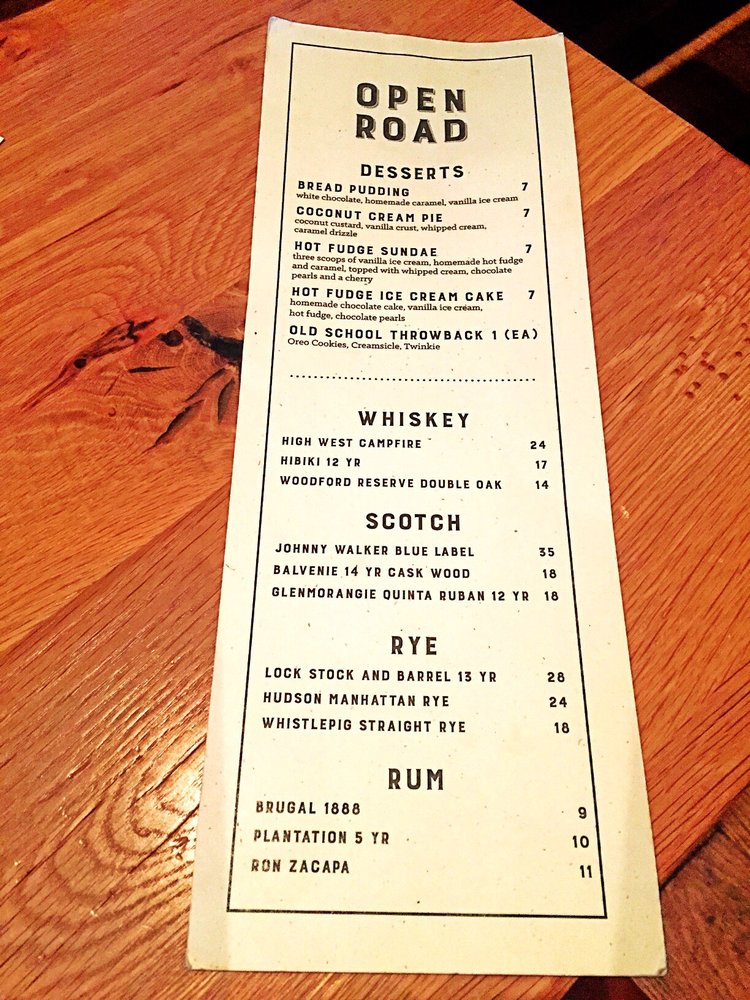 OPEN
ROAD
DESSERTS
BREAD PUDDING 7
white chocolate, homemade caramel, vanilla ice cream
COCONUT CREAM PIE 7
coconut custard, vanilla crust, whipped cream,
caramel drizzle
HOT FUDGE SUNDAE 7
three scoops of vanilla ice cream, homemade hot fudge
and caramel, topped with whipped cream, chocolate
pearls and a cherry
HOT FUDGE ICE CREAM CAKE 7
homemade chocolate cake, vanilla ice cream,
hot fudge, chocolate pearls
OLD SCHOOL THROWBACK 1 (EA)
Oreo Cookies, Creamsicle, Twinkie
WHISKEY
HIGH WEST CAMPFIRE 24
HIBIKI 12 YR 17
WOODFORD RESERVE DOUBLE OAK 14
SCOTCH
JOHNNY WALKER BLUE LABEL 35
BALVENIE 14 YR CASK WOOD 18
GLENMORANGIE QUINTA RUBAN 12 YR 18
RYE
LOCK STOCK AND BARREL 13 YR 28
HUDSON MANHATTAN RYE 24
WHISTLEPIG STRAIGHT RYE 18
RUM
BRUGAL 1888 9
PLANTATION 5 YR 10
RON ZACAPA 11